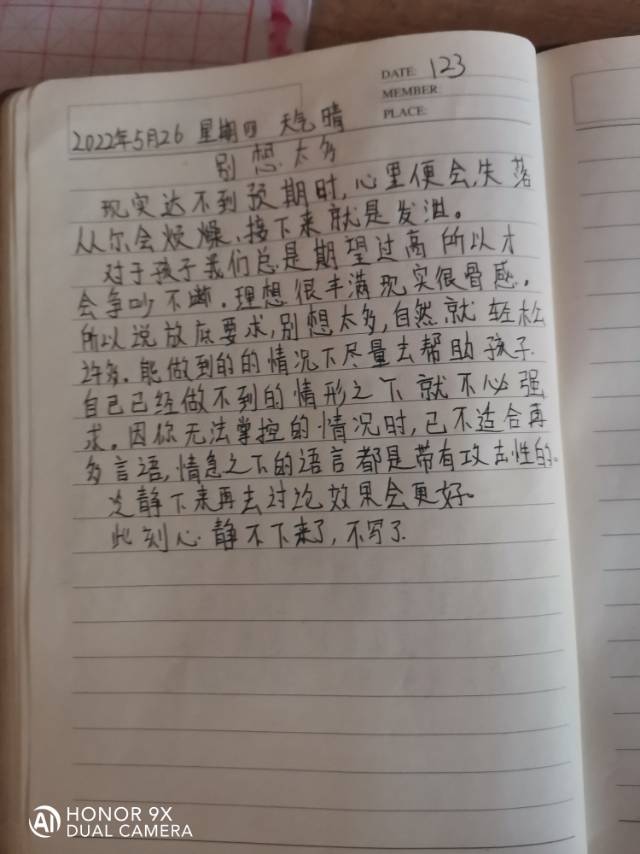 DATE: 123
MEMBER
PLACE:
2022年5月26 星期四 天气晴
别想太多
现实达不到预期时,心里便会失落
从尔会烦燥、接下来就是发泄。
对于孩子我们总是期望过高所以才
会争吵不断。理想很丰满现实很骨感。
所以说放底要求,别想太多,自然就轻松
许多。能做到的的情况下尽量去帮助孩子.
自己已经做不到的情形之下就不必强
求。因你无法掌控的情况时,已不适合再
多言语,情急之下的语言都是带有攻击性的。
静下来再去讨论效果会更好。
此刻心静不下来了,不写了.
HONOR 9X
DUAL CAMERA